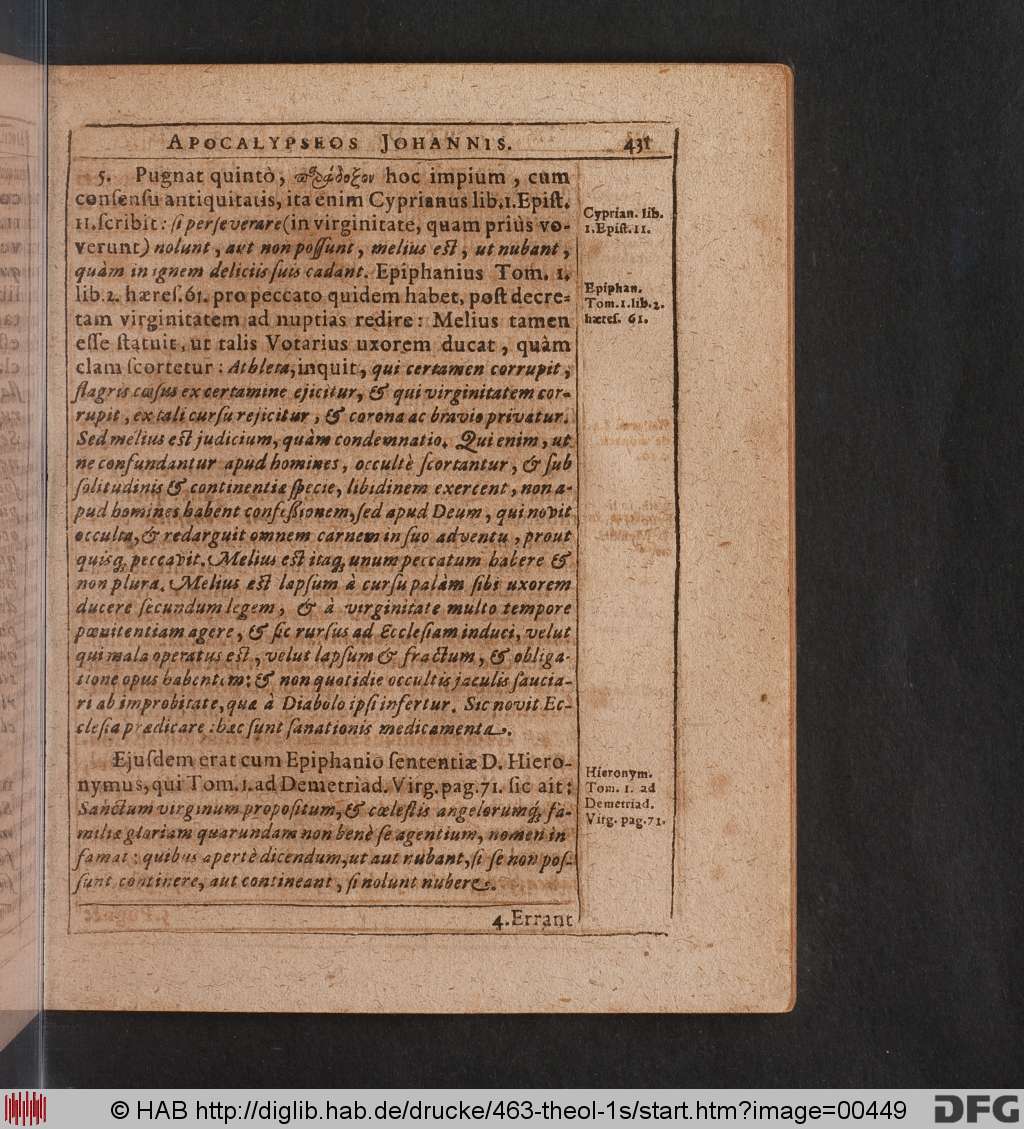 APOCALYPSEOS JOHANNIS. 431
5. Pugnat quintò, παράδοξον hoc impium, cum
consensu antiquitatis, ita enim Cyprianus lib.1.Epist.
11.scribit: si perseverare (in virginitate, quam priùs vo-
verunt) nolunt, aut non possunt, melius est, ut nubant,
quàm in ignem deliciis suis cadant. Epiphanius Tom. 1.
lib.2. hæres.61. pro peccato quidem habet, post decre-
tam virginitatem ad nuptias redire: Melius tamen
esse statuit, ut talis Votarius uxorem ducat, quàm
clam scortetur: Athleta, inquit, qui certamen corrupit,
flagris cæsus ex certamine ejicitur, & qui virginitatem cor-
rupit, ex tali cursu rejicitur, & corona ac bravio privatur.
Sed melius est judicium, quàm condemnatio. Qui enim, ut
ne confundantur apud homines, occultè scortantur, & sub
solitudinis & continentiæ specie, libidinem exercent, non a-
pud homines habent confessionem, sed apud Deum, qui novit
occulta, & redarguit omnem carnem in suo adventu, prout
quisq; peccavit. Melius est itaq; unum peccatum habere &
non plura. Melius est lapsum à cursu palàm sibi uxorem
ducere secundum legem, & à virginitate multo tempore
pœnitentiam agere, & sic rursus ad Ecclesiam induci, velut
qui mala operatus est, velut lapsum & fractum, & obliga-
tione opus habentem: & non quotidie occultis jaculis saucia-
ri ab improbitate, quæ à Diabolo ipsi infertur. Sic novit Ec-
clesia prædicare: hæc sunt sanationis medicamenta.
Ejusdem erat cum Epiphanio sententiæ D. Hiero-
nymus, qui Tom.1.ad Demetriad. Virg. pag.71. sic ait:
Sanctum virginum propositum, & cœlestis angelorumq; fa-
miliæ gloriam quarundam non benè se agentium, nomen in
famat: quibus apertè dicendum, ut aut nubant, si se non pos-
sunt continere, aut contineant, si nolunt nubere.
4.Errant
Cyprian. lib.
1.Epist.11.
Epiphan.
Tom.1.lib.2.
hæres. 61.
Hieronym.
Tom. 1. ad
Demetriad.
Virg. pag.71.
© HAB http://diglib.hab.de/drucke/463-theol-1s/start.htm?image=00449
DFG